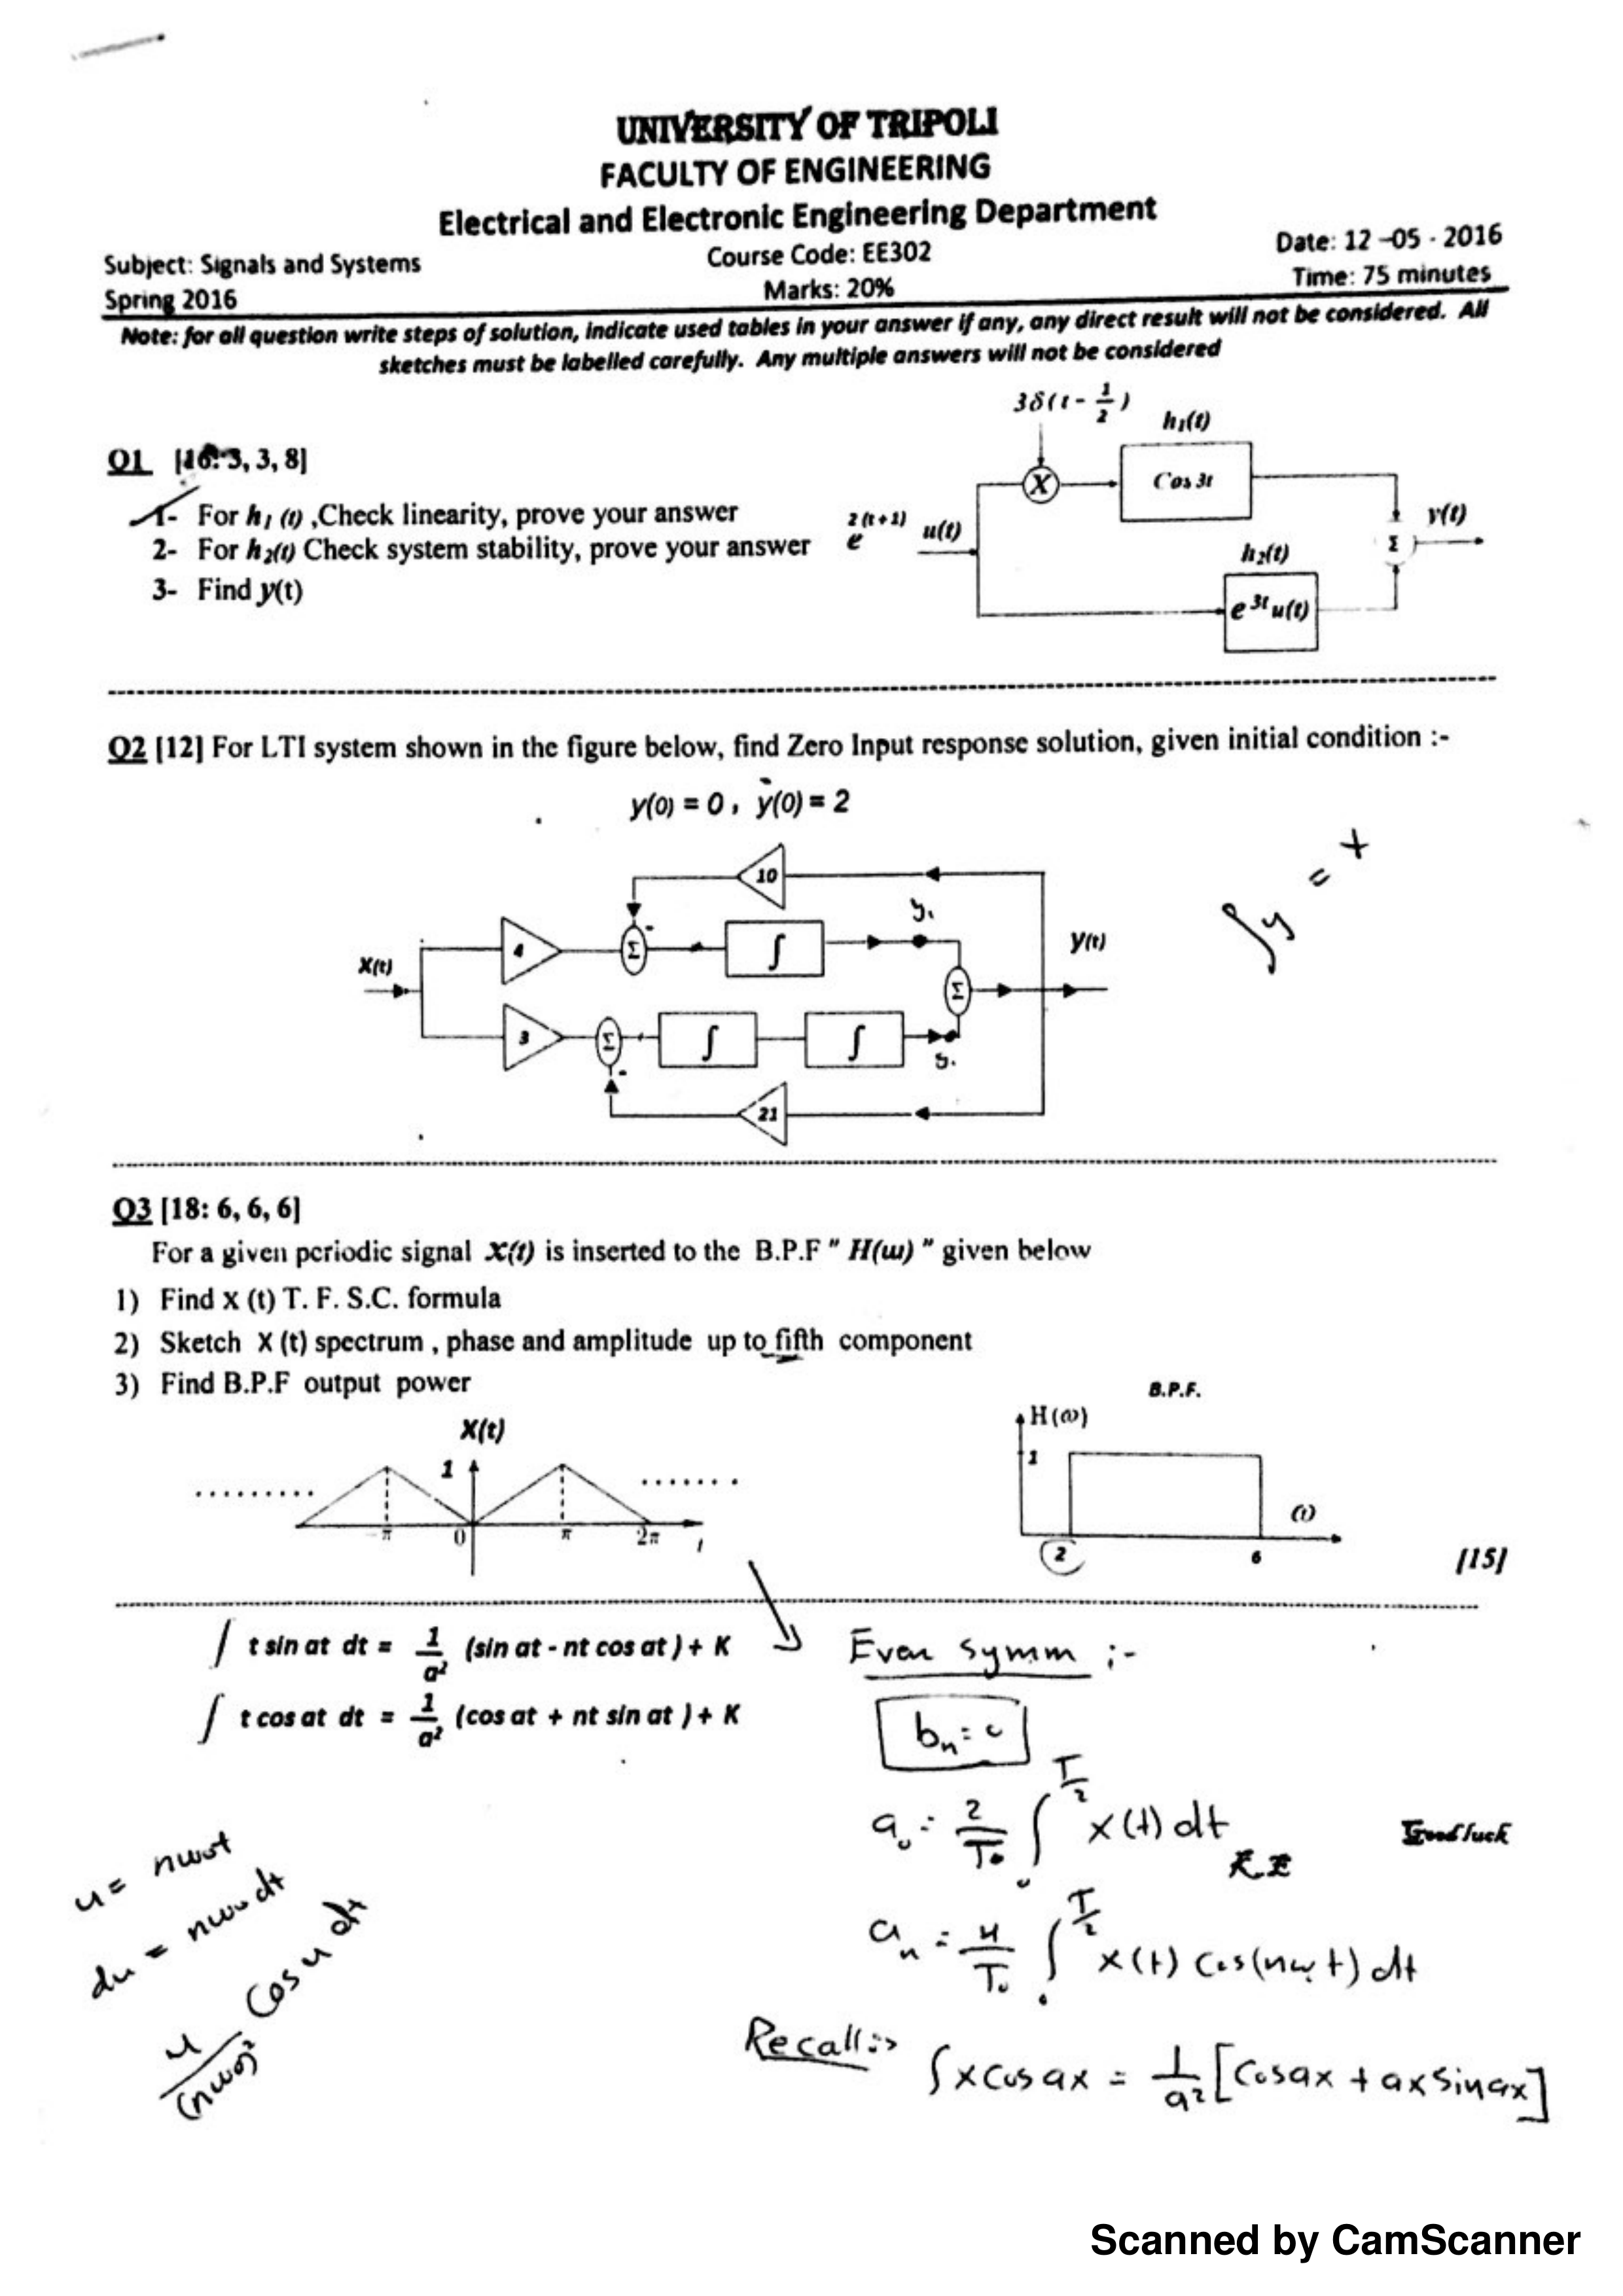 UNIVERSITY OF TRIPOLI
FACULTY OF ENGINEERING
Electrical and Electronic Engineering Department
Subject: Signals and Systems
Course Code: EE302
Date: 12 –05 - 2016
Spring 2016
Marks: 20%
Time: 75 minutes
Note: for all question write steps of solution, indicate used tables in your answer if any, any direct result will not be considered. All
sketches must be labelled carefully. Any multiple answers will not be considered
3δ(t - 1/2)
h₁(t)
Q1 [16: 3, 3, 8]
X
Cos 3t
1- For h₁ (t) ,Check linearity, prove your answer
e^2(t+1) u(t)
y(t)
Σ
2- For h₂(t) Check system stability, prove your answer
h₂(t)
3- Find y(t)
e^3t u(t)
Q2 [12] For LTI system shown in the figure below, find Zero Input response solution, given initial condition :-
y(0) = 0 , ẏ(0) = 2
10
y₁
4
Σ
∫
y(t)
X(t)
Σ
3
Σ
∫
∫
21
∫y = x
Q3 [18: 6, 6, 6]
For a given periodic signal X(t) is inserted to the B.P.F " H(ω) " given below
1) Find x (t) T. F. S.C. formula
2) Sketch X (t) spectrum , phase and amplitude up to fifth component
3) Find B.P.F output power
B.P.F.
X(t)
H(ω)
1
1
ω
-π 0 π 2π t
2 6
[15]
∫ t sin at dt = 1/a² (sin at - nt cos at ) + K
Even symm :-
∫ t cos at dt = 1/a² (cos at + nt sin at ) + K
bₙ = 0
a₀ = 2/T₀ ∫₀^T/2 x(t) dt
Good luck
aₙ = 4/T₀ ∫₀^T/2 x(t) cos(nω₀t) dt
u = nω₀t
du = nω₀ dt
u/(nω₀)² cos u dt
Recall:> ∫x cos ax = 1/a² [cos ax + ax sin ax]
Scanned by CamScanner